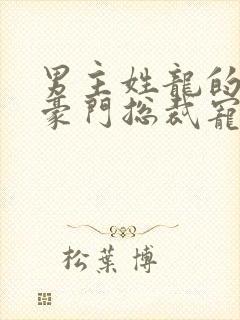 男主姓龍的
豪門總裁寵
松葉博